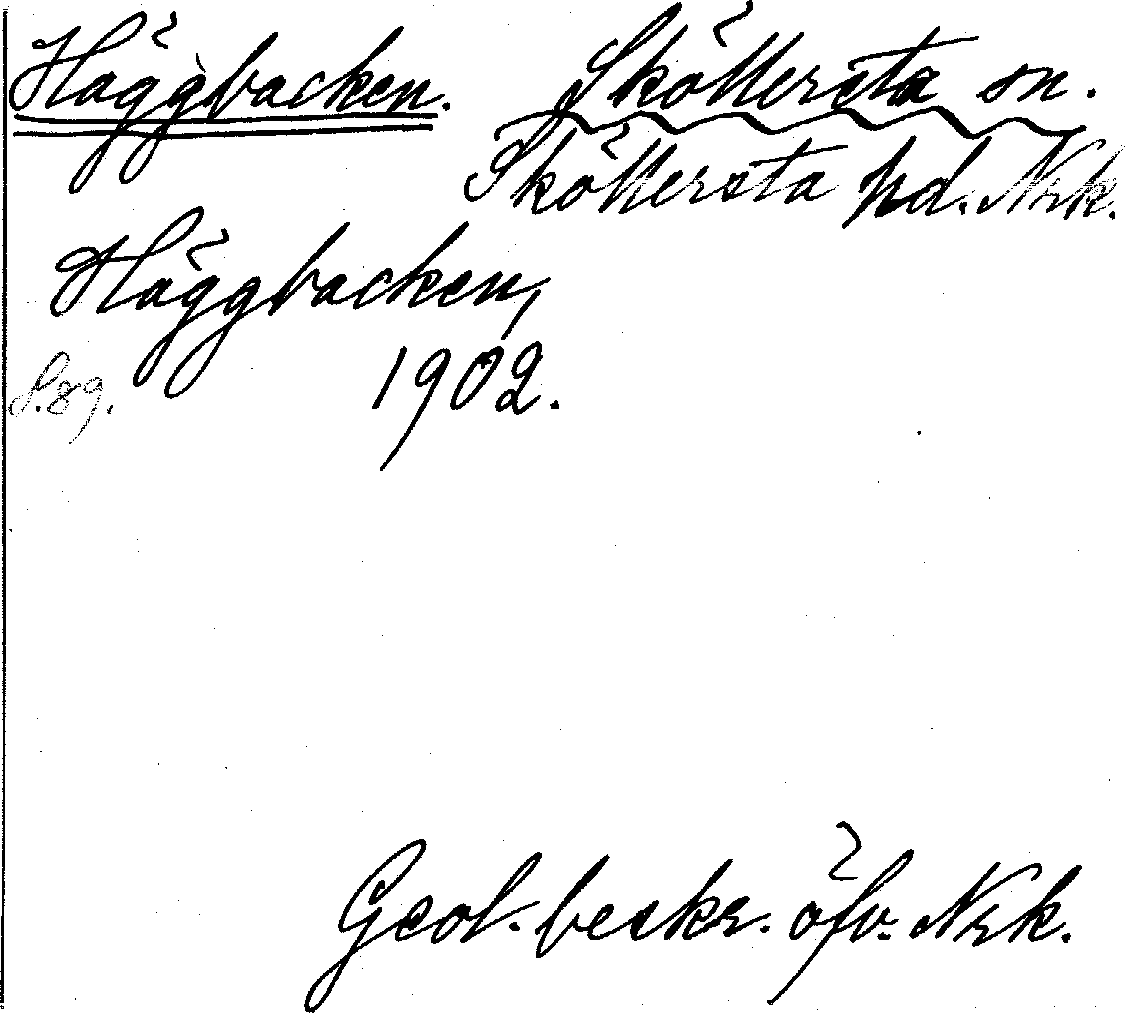 Häggbacken. Sköllersta sn.
Sköllersta hd. Nrk.
Häggbacken,
S. 89. 1902.
Geol. beskr. öfv. Nrk.